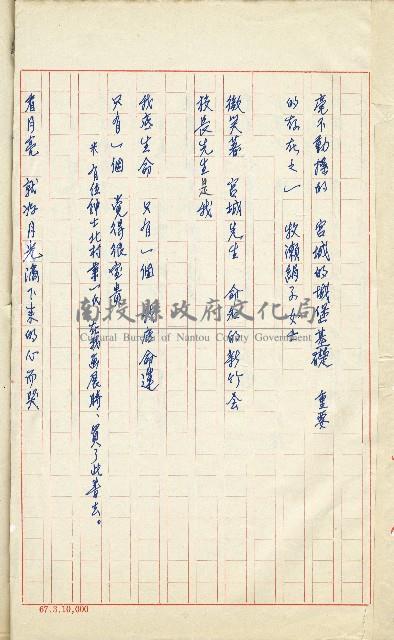 毫不動搖的 宮城的城堡基礎 重要
的存在之一 牧瀨絹子女士
微笑著 宮城先生 命名的新竹会
校長先生是我
我感生命 只有一個 感命運
只有一個 覺得很宝貴
* 有位紳士北村業一氏 在我画展時、買了此書去。
看月亮 就將月光滴下来的心而哭
南投縣政府文化局
Cultural Bureau of Nantou County Government
67.3.10,000